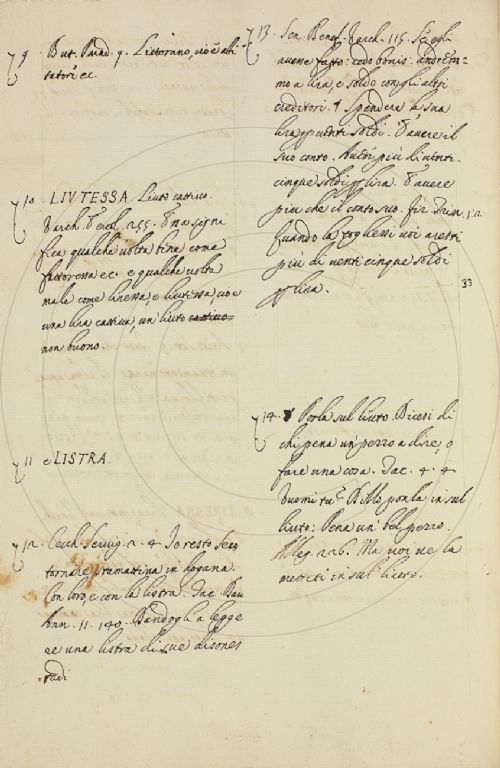 9. But. Purad. 9. Littorano, cioè abi-
tatori ec.
10. LIUTESSA. Liuto cattivo.
Varch. Ercol. 255. Ena signi
fica qualche volta bina come
fattoressa ec. e qualche volta
male come linessa, e liutessa, cioè
una lira cattiva, un liuto cattivo
non buono.
11 LISTRA.
12. Cecch. Servig. 2. 4 Io resto Seco
tornare stamattina in dogana.
Con loro, e con la listra. Dav.
Ann. 11. 140. Bandogli a legge
re una listra di sue disones
tadi
13. Sen. Benef. Varch. 115. S'egli
avesse fatto: cedo bonis. andrem=
mo a lira, e soldo con gli altri
creditori. E spendere a sua
lira venti soldi. E avere il
suo conto. Aver più di venti
cinque soldi per lira. E avere
più che il conto suo. Fir. Trin. 1. 2.
Quando la togliessi voi aresti
più di venti cinque soldi
per lira.
33
14. Porla sul liuto. Dicesi di
chi pena un pezzo a dire, o
fare una cosa. 4. 4
Buommattei porla in sul
liuto: Pena un bel pezzo.
Alleg. 226. Ma voi ne la
mettete in sul liuto.